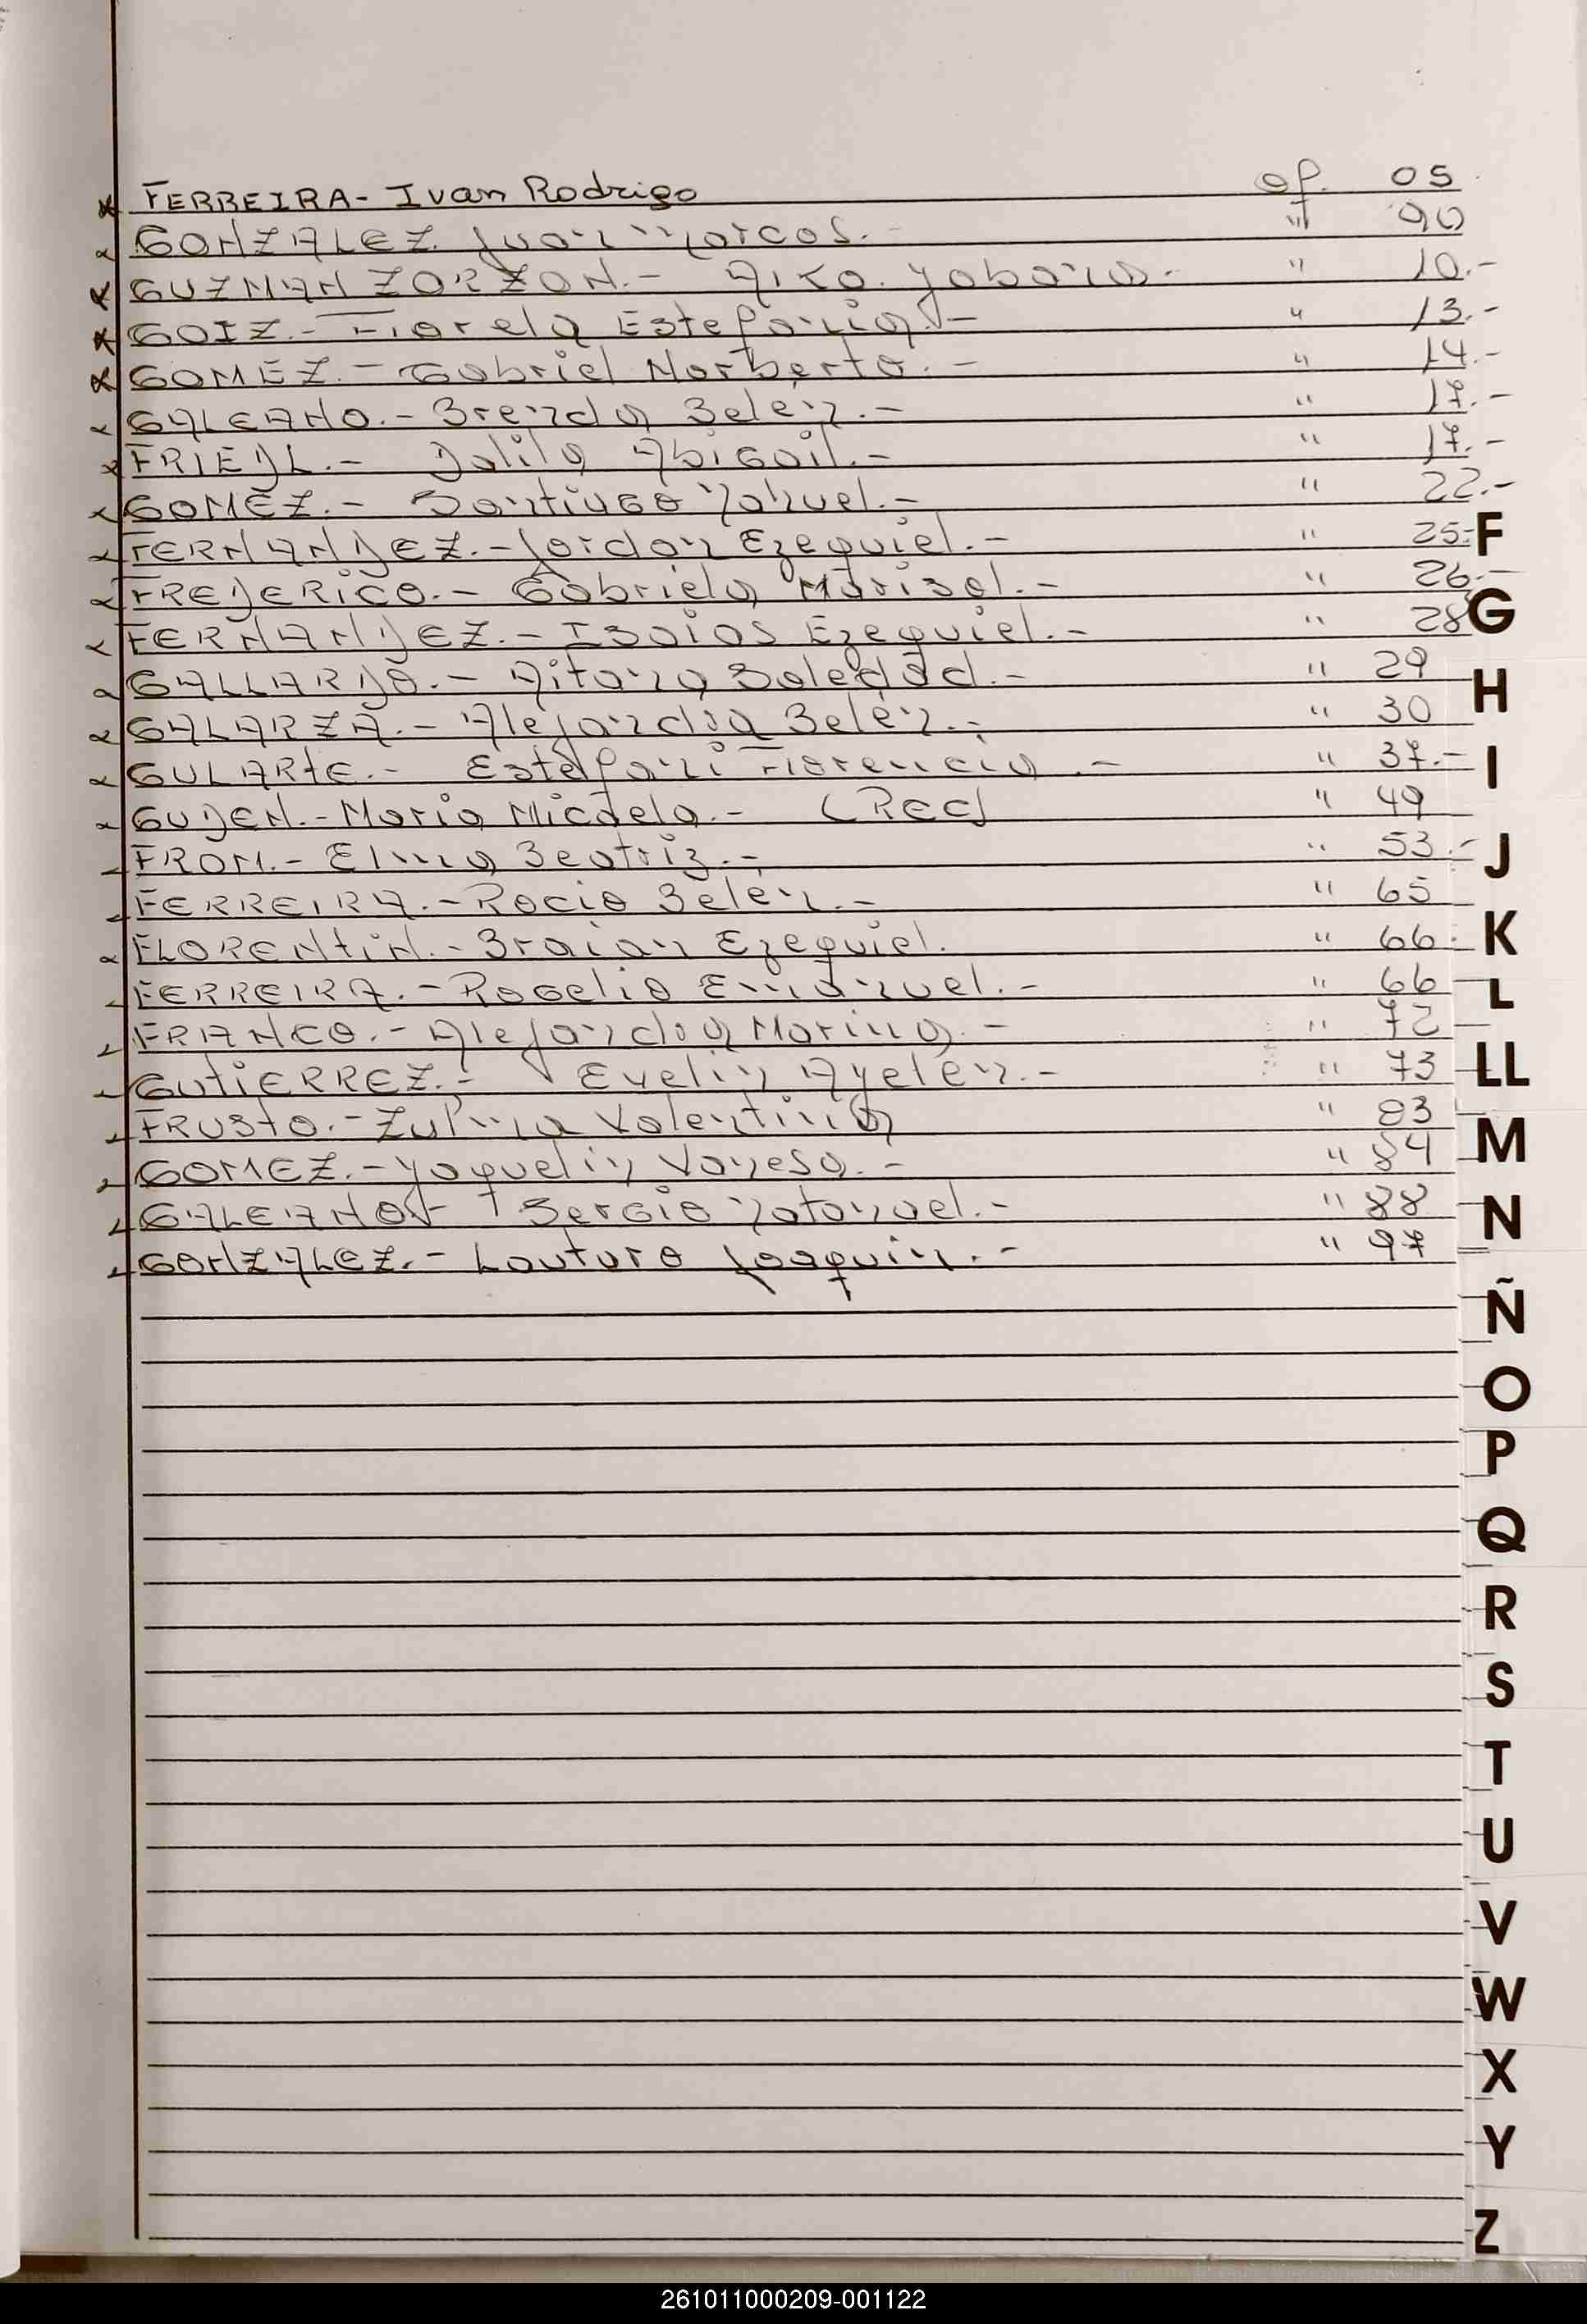 FERREIRA- Ivan Rodrigo of. 05
GONZALEZ. Juan Marcos.- " 90
GUZMAN ZORZON.- " 10.-
GOIZ.- Fiorela Estefania.- " 13.-
GOMEZ.- Gabriel Norberto.- " 14.-
GALEANO.- Brenda Belen.- " 17.-
FRIEDL.- Dalila Abigail.- " 17.-
GOMEZ.- Santiago Nahuel.- " 22.-
FERNANDEZ.- Jordan Ezequiel.- " 25.- F
FREDERICO.- Gabriela Marisol.- " 26.-
G
FERNANDEZ.- Isaias Ezequiel.- " 28
GALLARDO.- Aitana Soledad.- " 29
H
GALARZA.- Alejandra Belen.- " 30
GULARTE.- Estefani Florencia.- " 37.- I
GUDEN.- Maria Micaela.- (Rec) " 49
FROM.- Elma Beatriz.- " 53.- J
FERREIRA.- Rocio Belen.- " 65
FLORENTIN.- Braian Ezequiel. " 66.- K
FERREIRA.- Rogelio Emanuel.- " 66 L
FRANCO.- Alejandra Marina.- " 72
GUTIERREZ.- Evelin Ayelen.- " 73 LL
FRUSTO.- Zulma Valentina " 83
GOMEZ.- Yaquelin Vanesa.- " 84 M
GALEANO.- Sergio Natanael.- " 88 N
GONZALEZ.- Lautaro Joaquin.- " 97
Ñ
O
P
Q
R
S
T
U
V
W
X
Y
Z
261011000209-001122